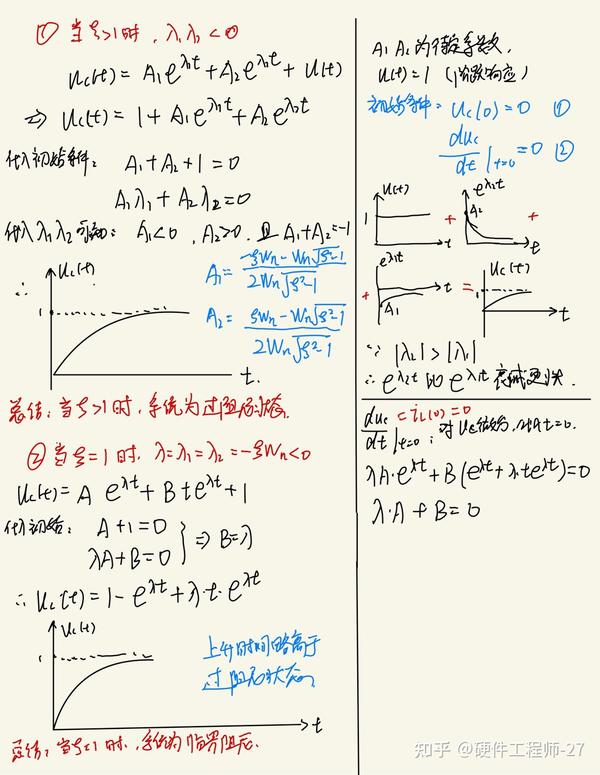 ① 当ξ>1时，λ₁λ₂<0
Uc(t) = A₁e^λ₁t + A₂e^λ₂t + U(t)
⇒ Uc(t) = 1 + A₁e^λ₁t + A₂e^λ₂t
代入初始条件： A₁+A₂+1=0
A₁λ₁ + A₂λ₂=0
代入λ₁λ₂可知： A₁<0，A₂>0，且A₁+A₂=-1
∴
Uc(t)
1
t.
A₁= (-ξWn-Wn√ξ²-1) / (2Wn√ξ²-1)
A₂= (ξWn-Wn√ξ²-1) / (2Wn√ξ²-1)
总结：当ξ>1时，系统为过阻尼状态.
② 当ξ=1时，λ=λ₁=λ₂=-ξWn<0
Uc(t) = A e^λt + B t e^λt + 1
代入初始： A+1=0
λA+B=0 } ⇒ B=λ
∴ Uc(t) = 1 - e^λt + λ·t·e^λt
Uc(t)
1
t
上升时间略高于
过阻尼状态
总结：当ξ=1时，系统为临界阻尼.
A₁ A₂为待定系数，
U(t)=1 （阶跃响应）
初始条件： Uc(0)=0 ①
duc/dt |t=0 =0 ②
U(t)
1
t
+
e^λ₂t
A₂
t
+
+
e^λ₁t
A₁
t
=
Uc(t)
t
∵ |λ₂|>|λ₁|
∴ e^λ₂t 比 e^λ₁t 衰减更快.
duc/dt |t=0 = iL(0)=0 ：对Uc微分，对t=0.
λA·e^λt + B(e^λt+λ·te^λt)=0
λ·A + B=0
知乎 @硬件工程师-27